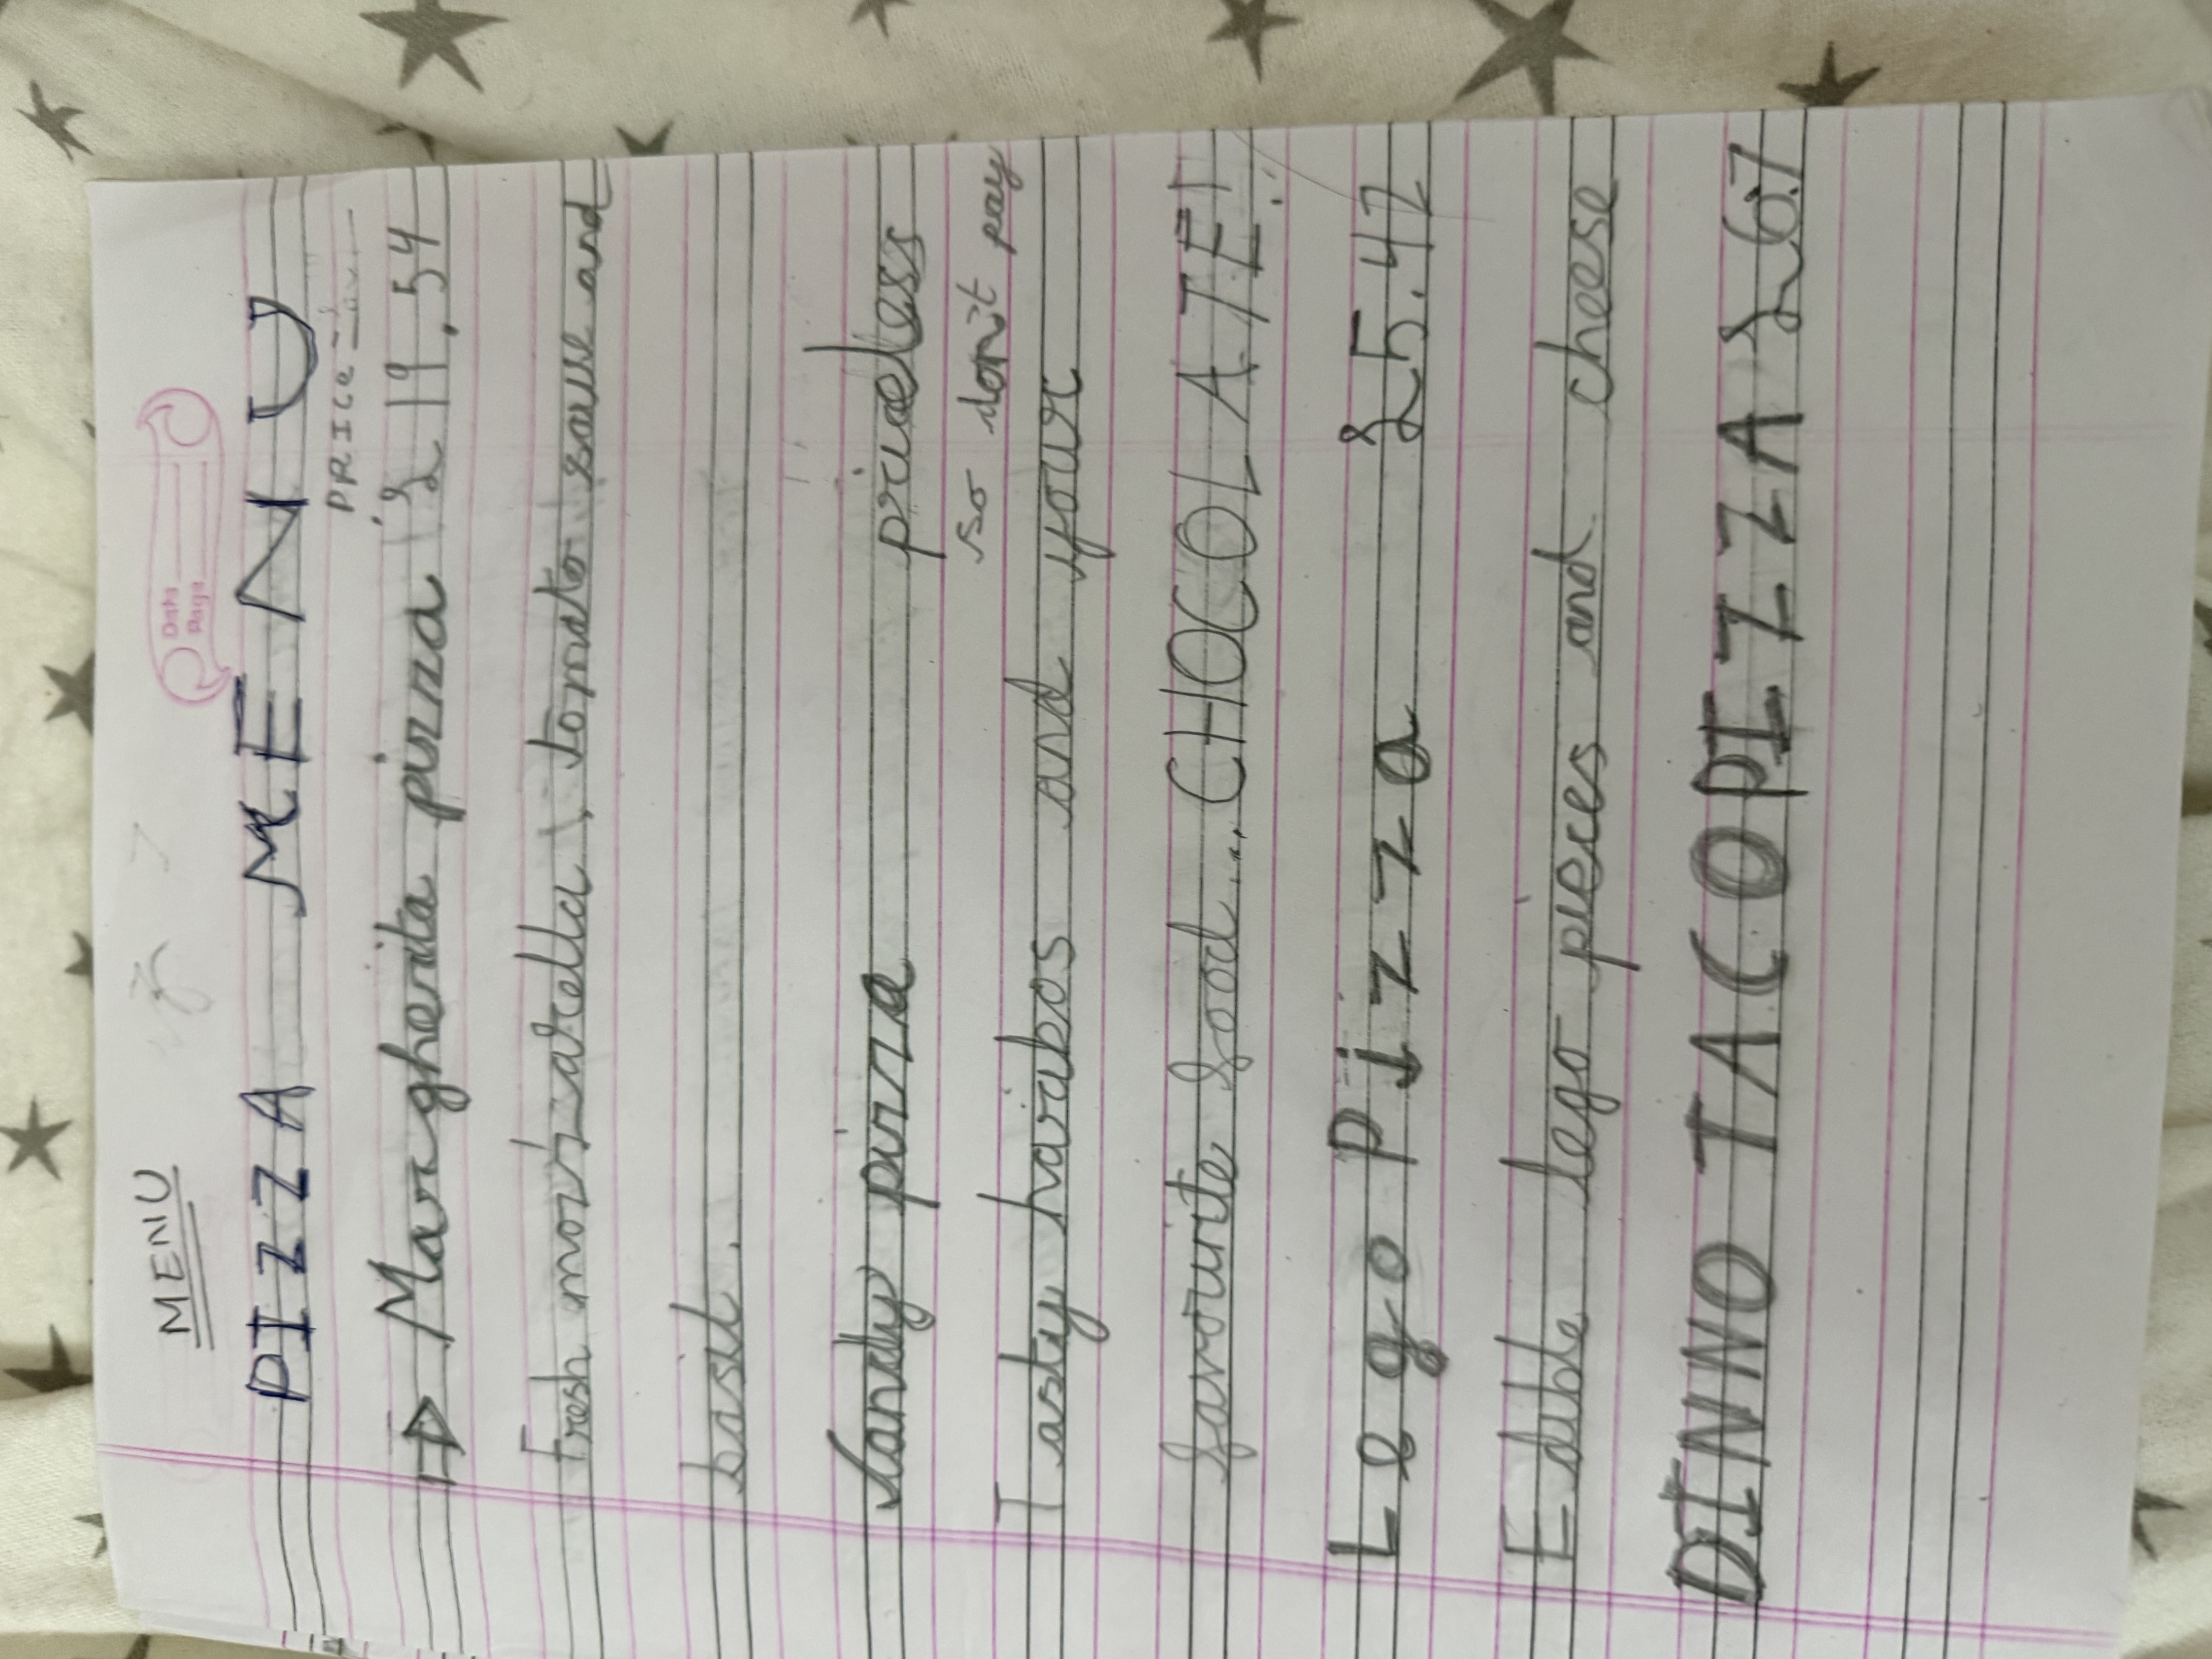 Date
Page
MENU
PIZZA MENU
PRICE
Margherita pizza £ 19.54
Fresh mozzarella, tomato sause and
basil.
Candy pizza priceless
so don't pay
Tasty haribos and your
favourite food.... CHOCOLATE!
Lego Pizza £5.42
Edible lego pieces and cheese
DINNO TACO PIZZA £6.7